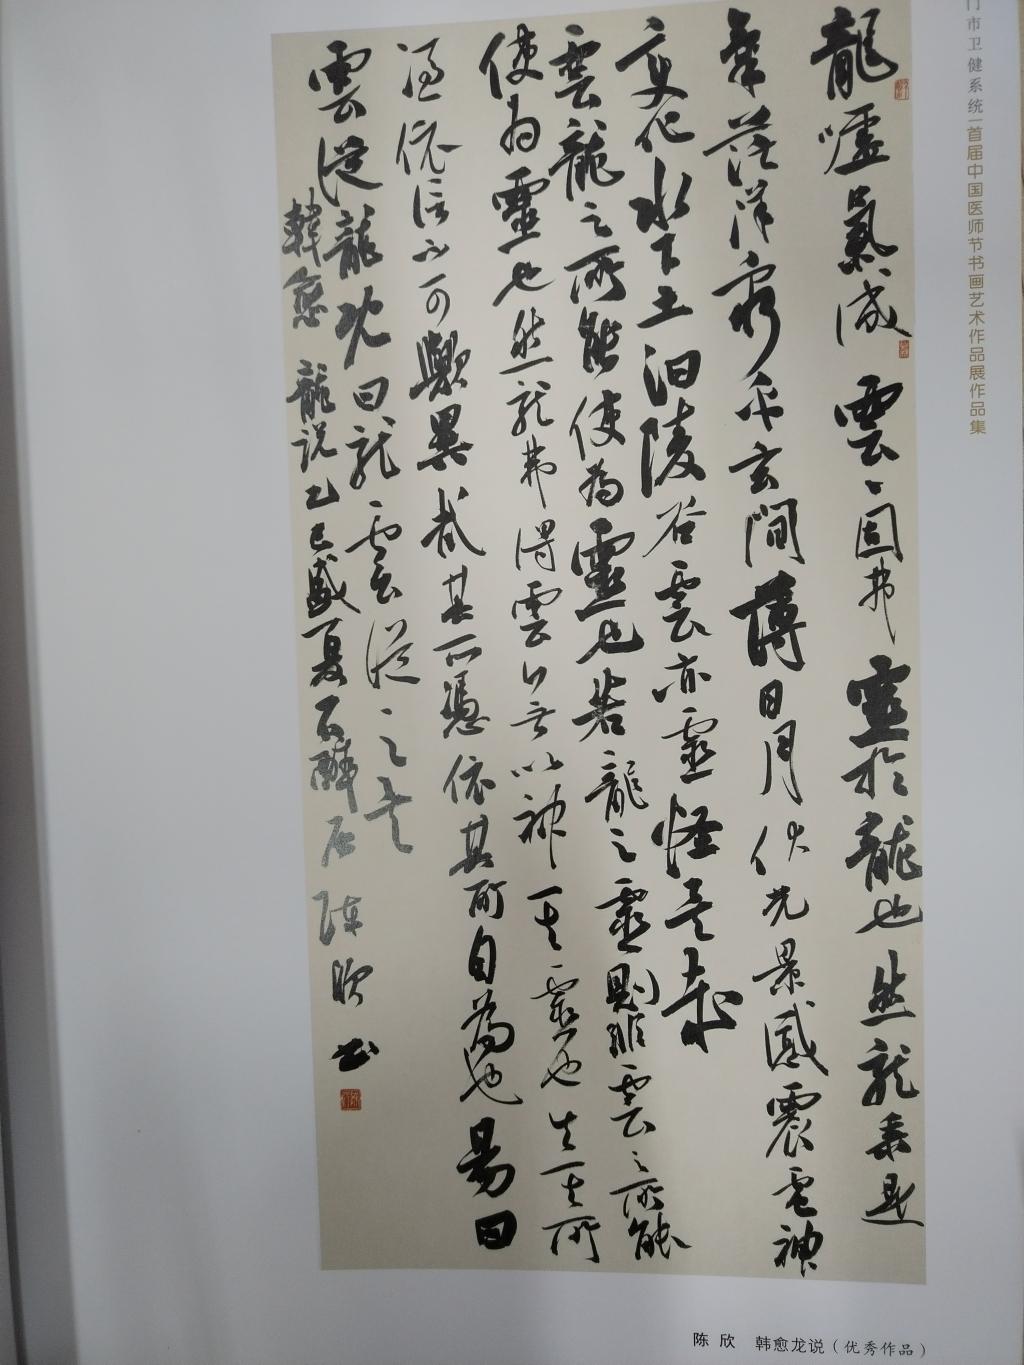 龍噓氣成雲雲固弗靈於龍也然龍乘是
氣茫洋窮乎玄間薄日月伏光景感震電神
變化水下土汩陵谷雲亦靈怪矣哉
雲龍之所能使為靈也若龍之靈則非雲之所能
使為靈也然龍弗得雲無以神其靈也失其所
憑依信不可歟異哉其所憑依其所自為也易曰
雲從龍既曰龍雲從之矣
韓愈龍說乙巳盛夏百醉石陈欣书
门市卫健系统首届中国医师节书画艺术作品展作品集
陈欣 韩愈龙说（优秀作品）